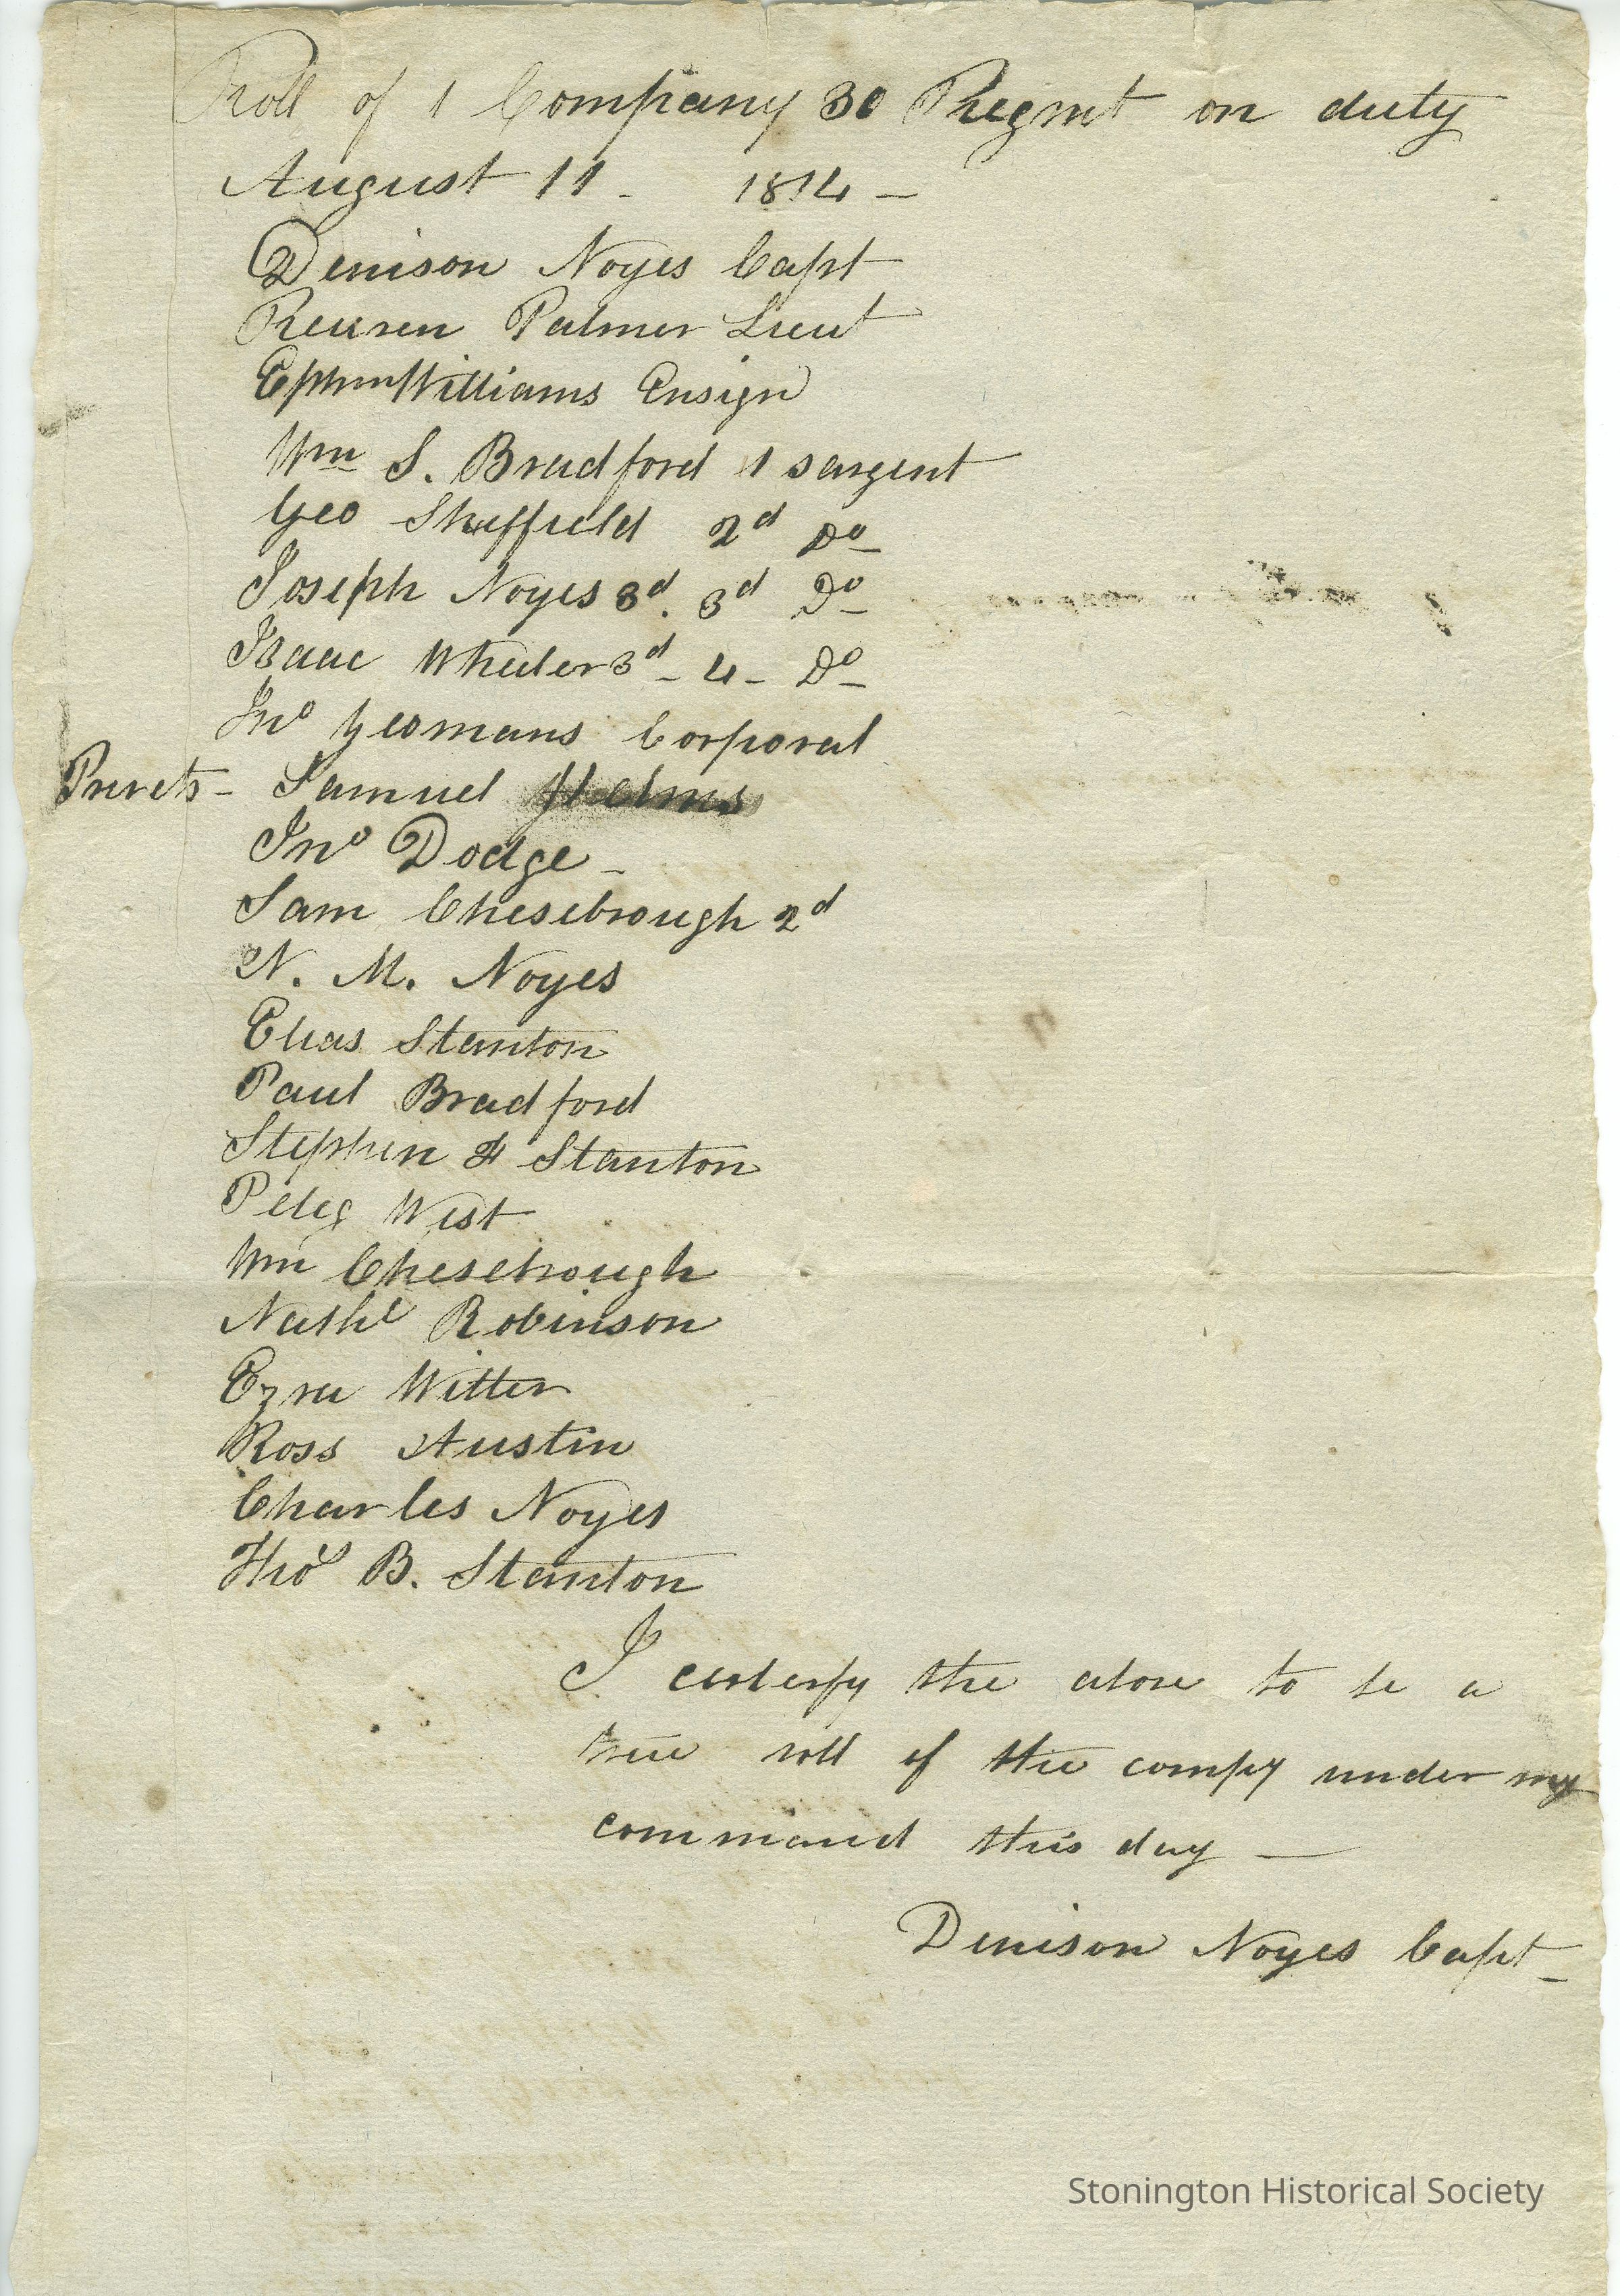 Roll of 1 Company 30 Regmt on duty
August 11 - 1814 -
Denison Noyes Capt
Reuben Palmer Lieut
Ephm Williams Ensign
Wm S. Bradford 1 sargent
Geo Sheffield 2d Do
Joseph Noyes 3d. 3d Do
Isaac Wheeler 3d - 4 - Do
Jno Yeomans Corporal
Privets - Samuel Helms
Jno Dodge -
Sam Chesebrough 2d
N. M. Noyes
Elias Stanton
Paul Bradford
Stephen H Stanton
Peleg West
Wm Chesebrough
Nathl Robinson
Ezra Witter
Ross Austin
Charles Noyes
Tho B. Stanton
I certerfy the above to be a
true roll of the compy under my
command this day —
Denison Noyes Capt -
Stonington Historical Society